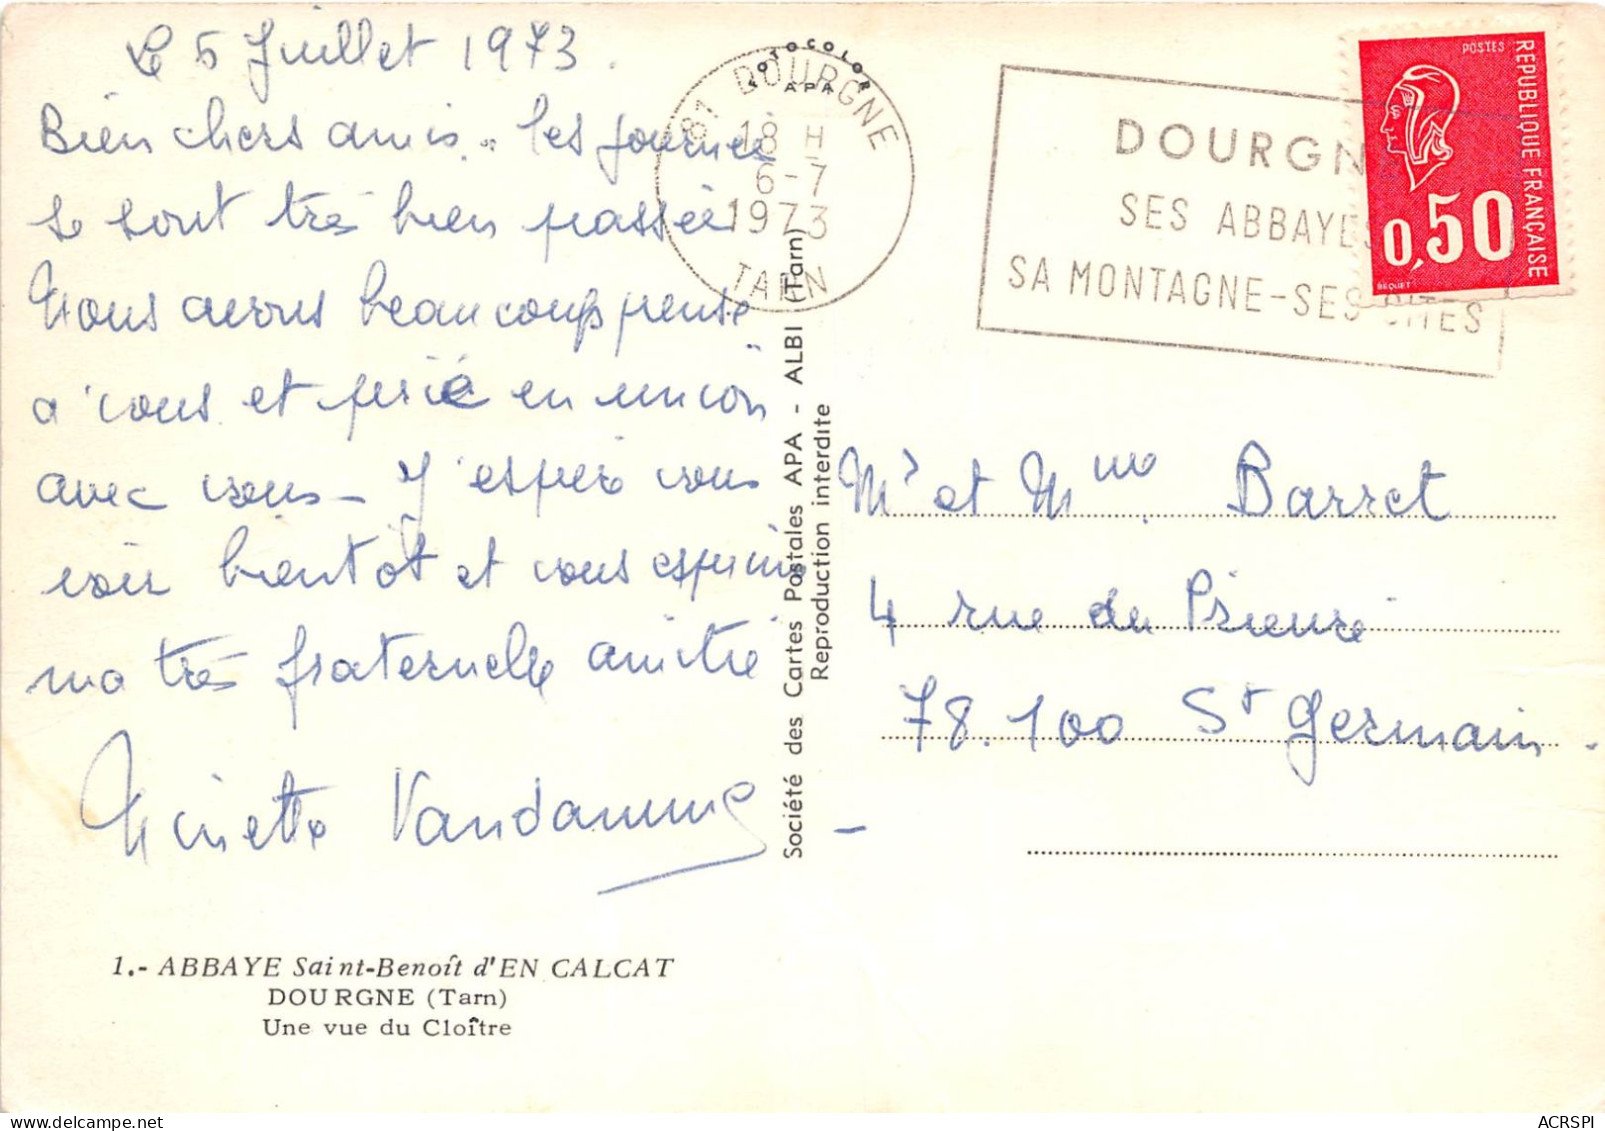 Le 5 Juillet 1973.
Bien chers amis. Les journées
se sont très bien passées
Nous avons beaucoup pensé
a vous et prié en union
avec vous - J'espère vous
voir bientot et vous exprime
ma très fraternelle amitié
Vandamme
1.- ABBAYE Saint-Benoît d'EN CALCAT
DOURGNE (Tarn)
Une vue du Cloître
Société des Cartes Postales APA - ALBI (Tarn)
Reproduction interdite
FOTOCOLOR
APA
81 DOURGNE
18 H
6-7
1973
TARN
DOURGNE
SES ABBAYES
SA MONTAGNE-SES SITES
POSTES
REPUBLIQUE FRANÇAISE
0,50
BEQUET
Mr et Mme Barret
4 rue du Prieuré
78.100 St Germain.
ACRSPI